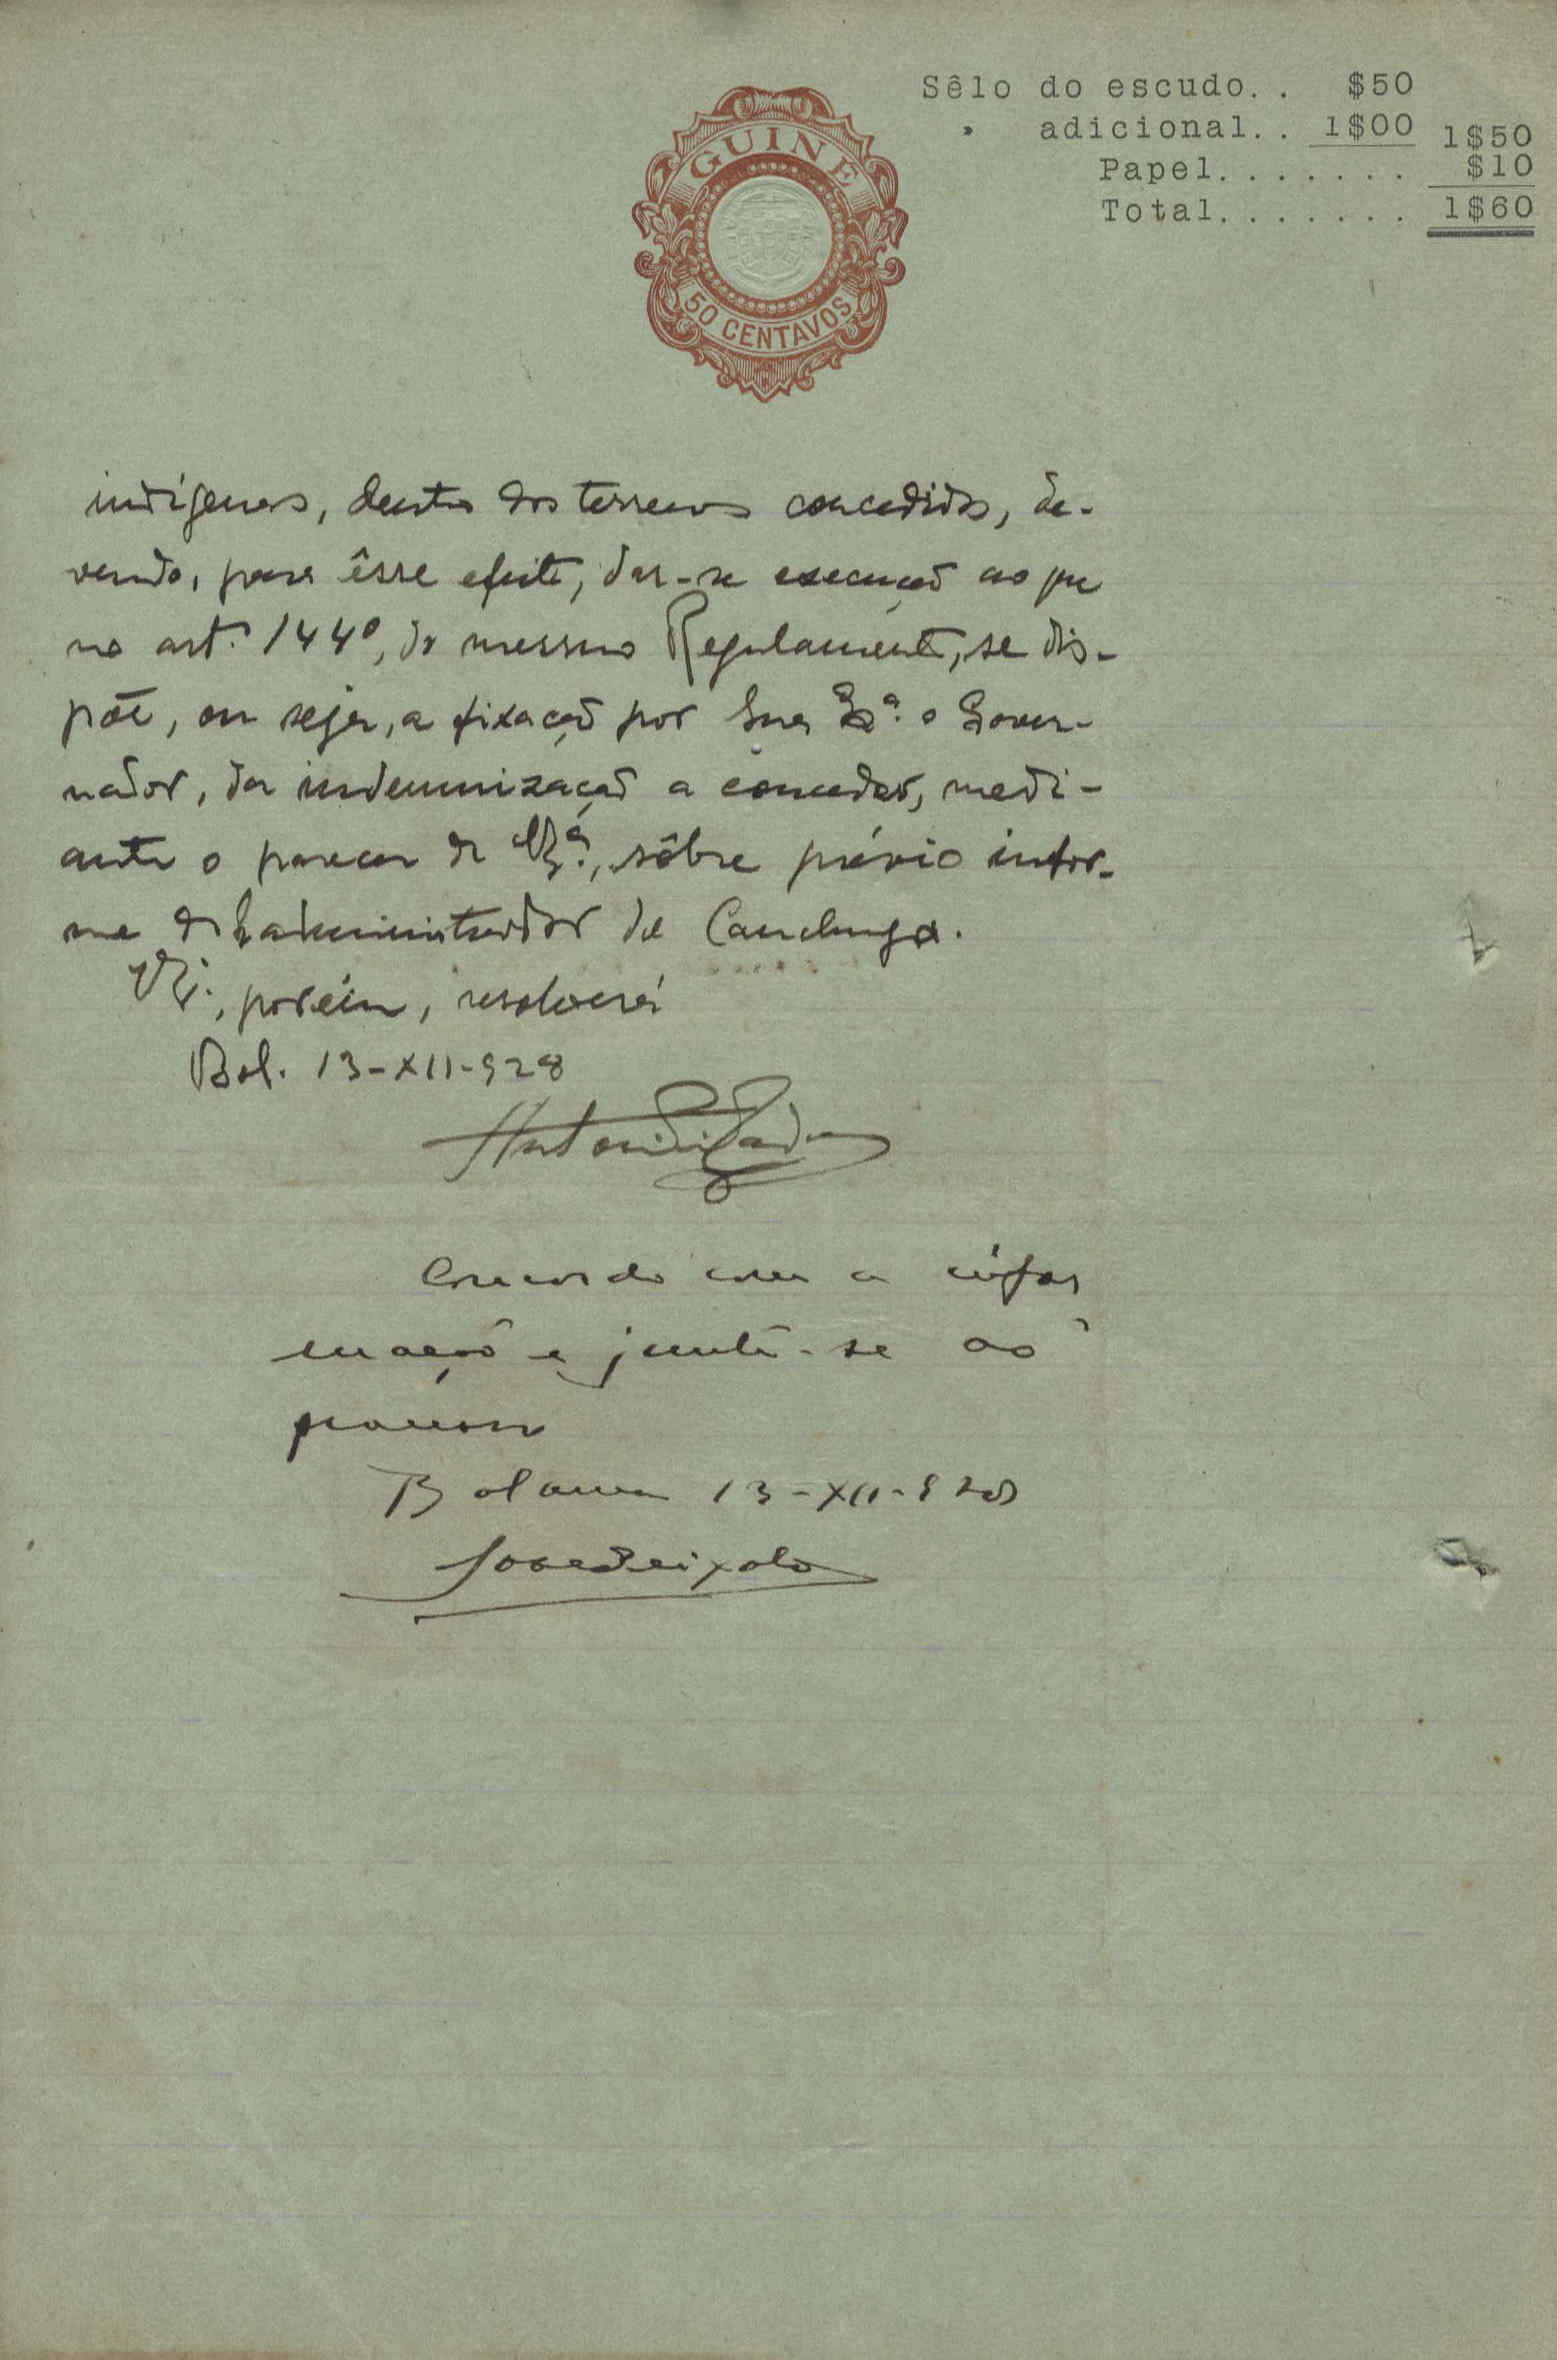 Sêlo do escudo. . $50
» adicional. . 1$00 1$50
Papel. . . . . . . $10
Total. . . . . . . 1$60
GUINÉ
50 CENTAVOS
indígenas, dentro dos terrenos concedidos, de-
vendo, para êsse efeito, dar-se execução ao que
no art.º 144º, do mesmo Regulamento, se dis-
põe, ou seja, a fixação por Sua Exª. o Gover-
nador, da indemnização a conceder, medi-
ante o parecer de V. Exª., sôbre prévio infor-
me do administrador de Canchungo.
V. Exª., porém, resolverá
Bol. 13-XII-928
Concordo com a infor
mação e junte-se ao
processo
Bolama 13-XII-928
José Peixoto